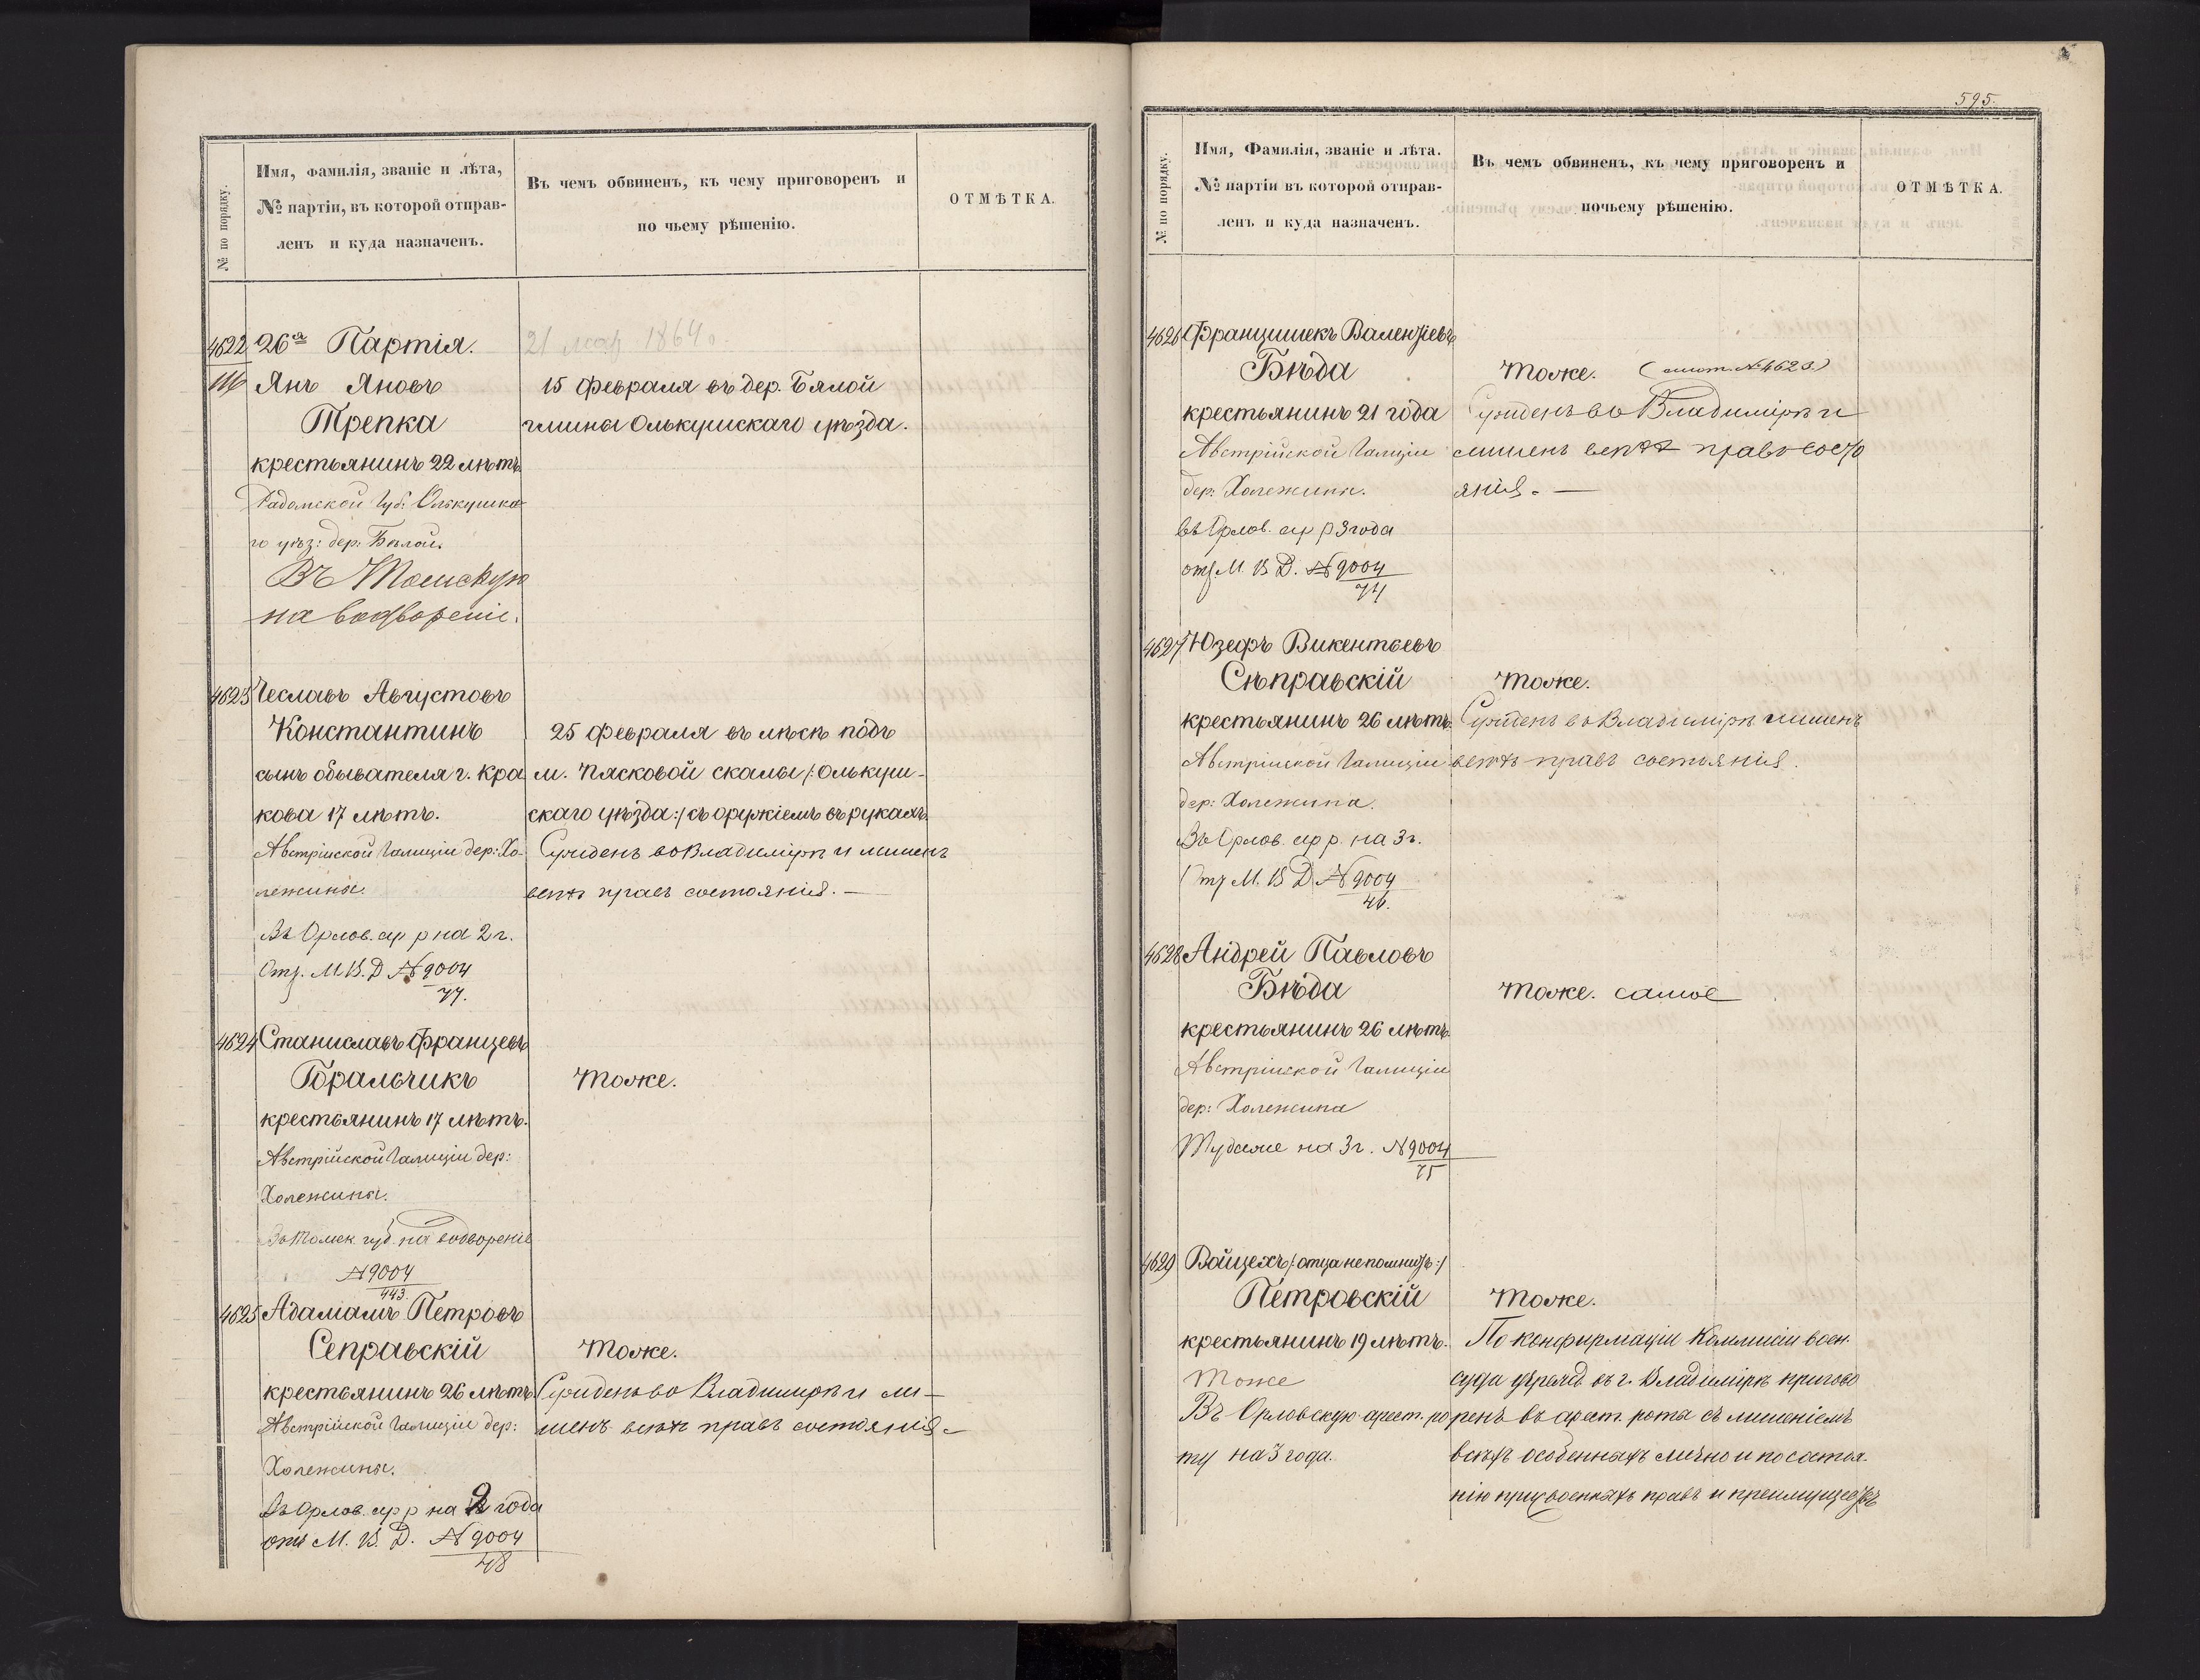 № по порядку.
Имя, фамилія, званіе и лѣта,
№ партіи, въ которой отправ-
ленъ и куда назначенъ.
Въ чемъ обвиненъ, къ чему приговоренъ и
по чьему рѣшенію.
ОТМѢТКА.
4622 26я Партія.
21 мар 1864 г.
116 Янъ Яновъ
Трепка
крестьянинъ 22 лѣтъ
Радомской губ: Олькушска
го уѣз: дер: Бѣлой.
Въ Томскую
на водвореніе.
15 Февраля въ дер. Бялой
гмины Олькушскаго уѣзда.
4623 Чеславъ Августовъ
Константинъ
сынъ обывателя г. Кра
кова 17 лѣтъ.
Австрійской Галиціи дер: Хо-
лежина.
Въ Орлов. ар р на 2 г.
Отз. М. В. Д № 9004
77.
25 Февраля въ лѣсѣ подъ
м. Пясковой скалы /: Олькуш-
скаго уѣзда:/ съ оружіемъ въ рукахъ.
Сужденъ во Владимірѣ и лишенъ
всѣхъ правъ состоянія. —
4624 Станиславъ Францевъ
Боральчикъ
крестьянинъ 17 лѣтъ.
Австрійской Галиціи дер:
Холежина.
Въ Томск. губ. на водвореніе
№ 9004
443.
Тоже.
4625 Адамамъ Петровъ
Сеправскій
крестьянинъ 26 лѣтъ.
Австрійской Галиціи дер:
Холежина.
Въ Орлов. ар р на 2 года
отз М. В. Д. № 9004
48
Тоже.
Сужденъ во Владимірѣ и ли-
шенъ всѣхъ правъ состоянія.
595.
№ по порядку.
Имя, Фамилія, званіе и лѣта.
№ партіи въ которой отправ-
ленъ и куда назначенъ.
Въ чемъ обвиненъ, къ чему приговоренъ и
почьему рѣшенію.
ОТМѢТКА.
4626 Францишекъ Валентіевъ
Бѣда
крестьянинъ 21 года
Австрійской Галиціи
дер: Холежина.
въ Орлов. ар р 3 года
отз. М. В. Д. № 9004
74
Тоже. (смот. № 4623)
Сужденъ во Владимірѣ и
лишенъ всѣхъ правъ состо
янія. —
4627 Юзефъ Викентьевъ
Сѣправскій
крестьянинъ 26 лѣтъ.
Австрійской Галиціи
дер: Холежина.
Въ Орлов. ар р. на 3 г.
Отз М. В. Д. № 9004
46.
Тоже.
Сужденъ во Владимірѣ лишенъ
всѣхъ правъ состоянія.
4628 Андрей Павловъ
Бѣда
крестьянинъ 26 лѣтъ.
Австрійской Галиціи
дер: Холежина
Туда же на 3 г. № 9004
75
Тоже. самое
4629 Войцехъ /: отца не помнитъ :/
Петровскій
крестьянинъ 19 лѣтъ.
Тоже
Въ Орловскую арест. ро
ту на 3 года.
Тоже.
По конфирмаціи Коммисіи воен.
суда учрежд. въ г. Владимірѣ пригово
ренъ въ арест. роты съ лишеніемъ
всѣхъ особенныхъ лично и по состоя.
нію присвоенныхъ правъ и преимуществъ